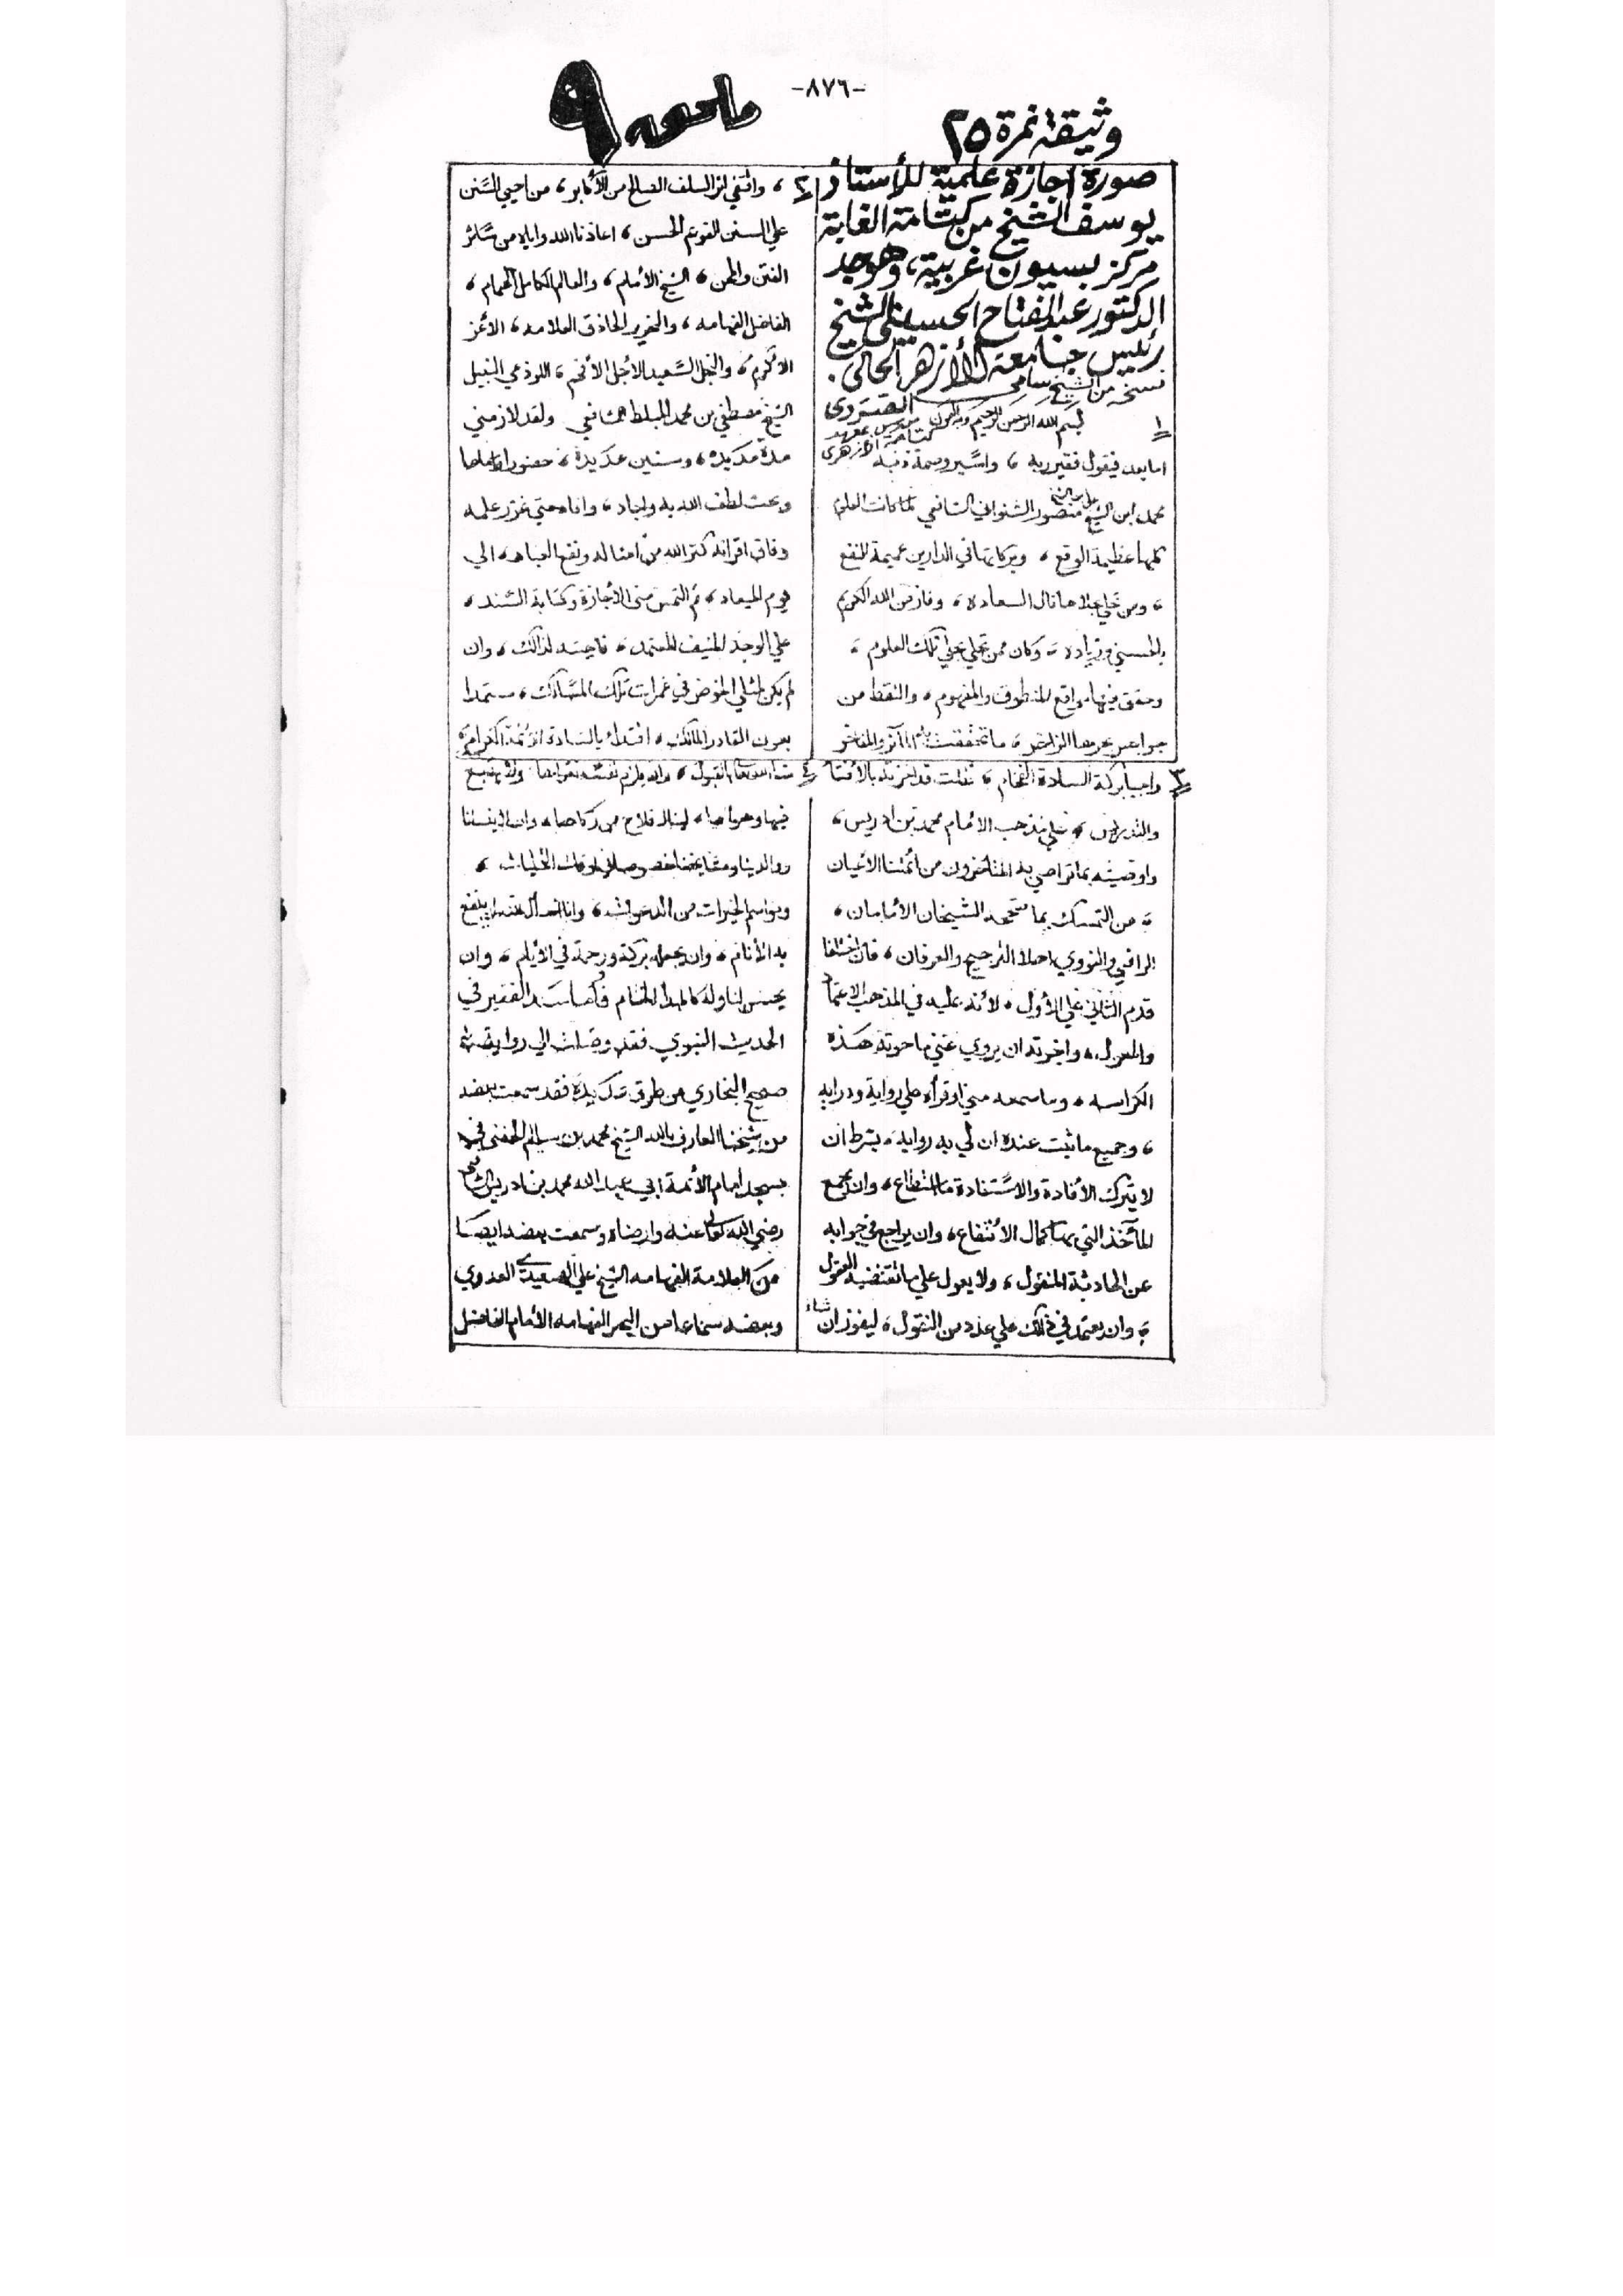 -٨٧٦-
وثيقة نمرة ٢٥
صورة اجازة علمية للأستاذ
يوسف الشيخ من كتامة الغابة
مركز بسيون غربية، وهو جد
الدكتور عبد الفتاح الحسيني الشيخ
رئيس جامعة الأزهر الحالى.
نسخه من الشيخ سامى
١
بسم الله الرحمن الرحيم
اما بعد فيقول فقير ربه ، واسير وصمة ذنبه
محمد ابن الشيخ علي بن الشيخ منصور الشنواني الشافعي لما كانت العلوم
كلها عظيمة الوقع ، وبركاتها في الدارين عميمة النفع
، ومن تحلي بحلاها نال السعاده ، وفاز من الله الكريم
بالحسني وزياده ، وكان ممن تحلي بحلي تلك العلوم ،
وحقق فيها مواقع المنطوق والمفهوم ، والتقط من
جواهر بحرها الزاخر ، المآثر والمفاخر
٢
، واقتفي اثر السلف الصالح من الأكابر ، من احيي السنن
علي السنن القويم الحسن ، اعاذنا الله واياه من سائر
الفتن والمحن ، الشيخ الأمام ، والعالم الكامل الهمام ،
الفاضل الفهامه ، والنحرير الحاذق العلامه ، الأعز
الأكرم ، والنجل السعيد الأجل الأفخم ، اللوذعي النبيل
الشيخ مصطفي بن محمد المبلط الشافعي ولقد لازمني
مدة مديده ، وسنين عديدة ، حضورا
وبحث لطف الله به واجاد ، وافاد حتي غزر علمه
وفاق اقرانه كثر الله من امثاله ونفع العباد ، الي
يوم الميعاد ، ثم التمس منى الأجازة وكتابة السند ،
علي الوجه المنيف المعتمد ، فاجبته لذالك ، وان
لم يكن لمثلي الخوض في غمرات تلك المسالك ، مستمدا
بعون القادر المالك ، اقتداء بالسادة الأئمة الكرام ،
٣
راجيا بركة السادة الفخام ، فقلت قد اجزته بالأفتا
والتدريس ، علي مذهب الامام محمد بن ادريس ،
واوصيته بما تواصي به المتأخرون من أئمتنا الأعيان
، من التمسك بما صححه الشيخان الأمامان ،
الرافعي والنووي اهلا الترجيح والعرفان ، فان اختلفا
قدم الثاني علي الأول ، لأنه عليه في المذهب الاعتماد
والمعول ، واجزته ان يروي عني ما حوته هذه
الكراسه ، وما سمعه مني او قرأه علي رواية ودرايه
، وجميع ما ثبت عنده ان لي به رواية ، بشرط ان
لا يترك الأفادة والاستفادة ما استطاع ، وان يجمع
المآخذ التي بها كمال الانتفاع ، وان يراجع في جوابه
عن الحادثة المنقول ، ولا يعول علي ما تقتضيه العقول
، وان يعتمد في ذلك علي عدد من النقول ، ليفوز ان شاء
٤
الله تعالى بالقبول ،
فيها وهو أهلها ،
ووالدينا ومشايخنا خصوصا في اوقات الخليات ،
ومواسم الخيرات من الدعوات ، وانا اسأل الله ان ينفع
به الأنام ، وان يجعله بركة ورحمة في الأيام ، وان
يحسن لنا وله كالمبدا الختام فأما سند الفقير في
الحديث النبوي فقد وصلت الي رواية
صحيح البخاري من طرق عديدة فقد سمعت بعضه
من شيخنا العارف بالله الشيخ محمد بن سالم الحفني في
مسجد امام الأئمة ابي عبد الله محمد بن ادريس الشافعي
رضي الله تعالى عنه وارضاه وسمعت بعضه ايضا
من العلامة الفهامه الشيخ علي الصعيدي العدوي
وبعضه سماعا من البحر الفهامه الأمام الفاضل